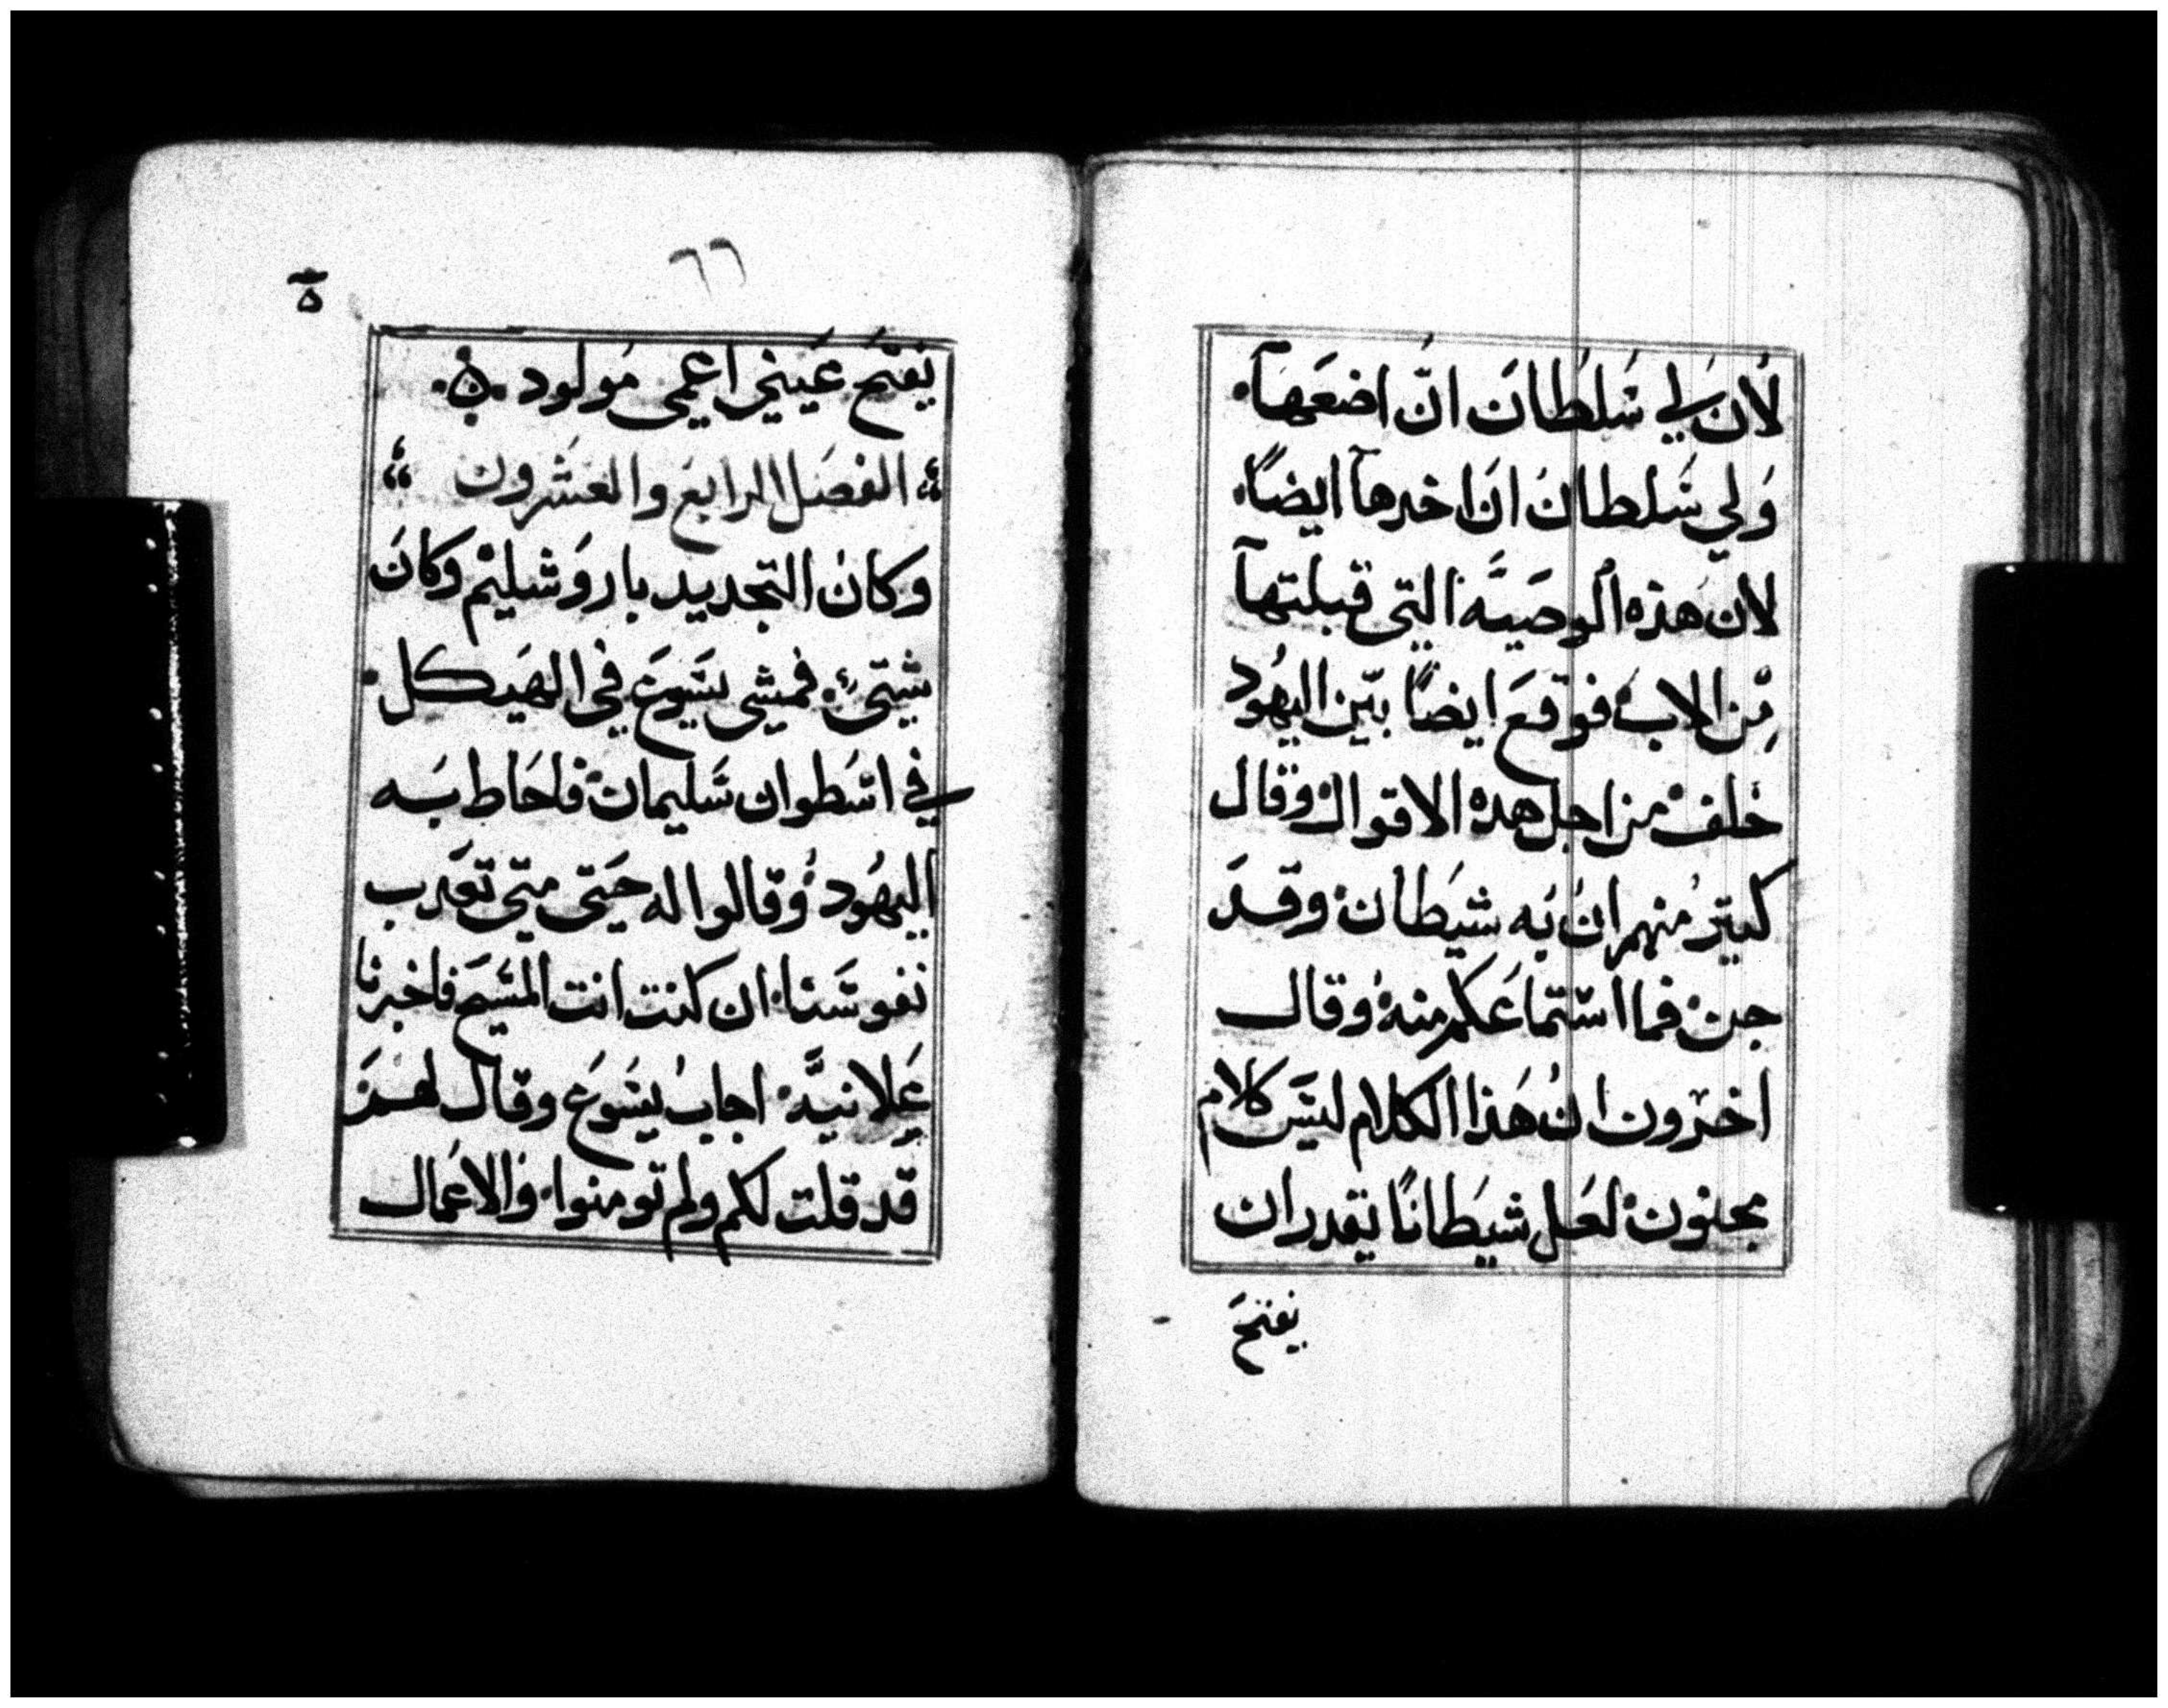 لأن لي سَلطان انّ اضعَها.
وَلي سَلطان ان اخدهآ ايضاً.
لان هَذه الوصيَّه التي قبلتهآ
مّن الاب فوقعَ ايضاً بيّن اليهُود
خلف من اجل هده الاقوال وقال
كتير منهم ان به شيَطان وقدَ
جن فما استماعَكم منه وقال
اخرون ان هَذا الكلام ليسَ كلام
مجنون لعَل شيَطانًا يقدر ان
يفتحَ
٦٦
ة
يَفتحَ عَيني اعمى مَولود .ة.
الفصَل الرابعَ والعشَرون
وكان التجديد باروَشليم وكانَ
شيتىً. فمشى يسَوعَ في الهيَكل.
في اسَطوان سَليمان فاحَاط بَه
اليهُود وقالوا له حَتى متى تعَدب
نفوسَنا. ان كنت انت المسَيحَ فاخبرنا
عَلانيَّه. اجاب يسَوعَ وقال لهمَ
قد قلت لكم ولم تومنوا. والاعَمال